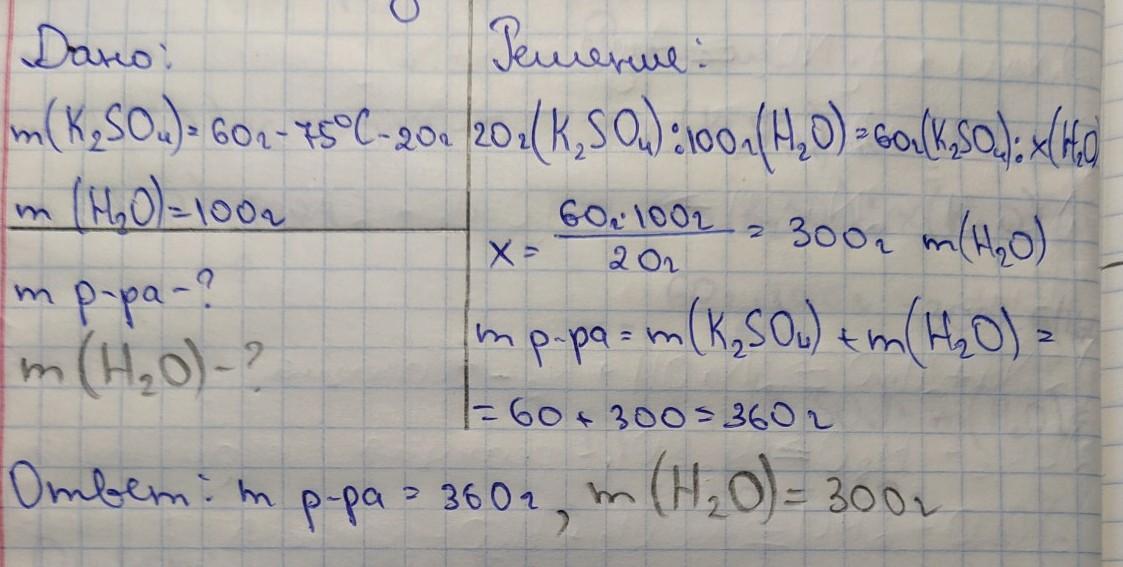 Дано:
m(K₂SO₄)=60г-75°C-20г
m (H₂O)=100г
m р-ра-?
m(H₂O)-?
Решение:
20г(K₂SO₄):100г(H₂O)=60г(K₂SO₄):x(H₂O)
x= 60г·100г / 20г = 300г m(H₂O)
m р-ра=m(K₂SO₄)+m(H₂O)=
=60+300=360г
Ответ: m р-ра=360г, m(H₂O)=300г